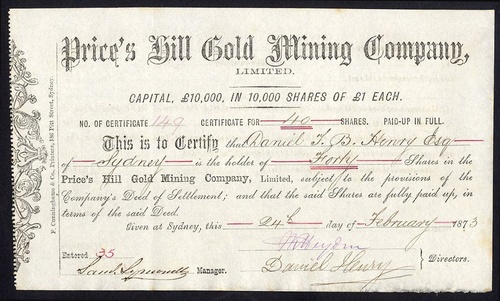 Price's Hill Gold Mining Company,
LIMITED.
CAPITAL, £10,000, IN 10,000 SHARES OF £1 EACH.
NO. OF CERTIFICATE 149 CERTIFICATE FOR 40 SHARES. PAID-UP IN FULL.
This is to Certify that Daniel T. B. Henry Esq
of Sydney is the holder of Forty Shares in the
Price's Hill Gold Mining Company, Limited, subject to the provisions of the
Company's Deed of Settlement; and that the said Shares are fully paid up, in
terms of the said Deed.
Given at Sydney, this 24th day of February 1873
Entered 35
Manager.
Daniel Henry
Directors.
F. Cunninghame & Co., Printers, 186 Pitt Street, Sydney.